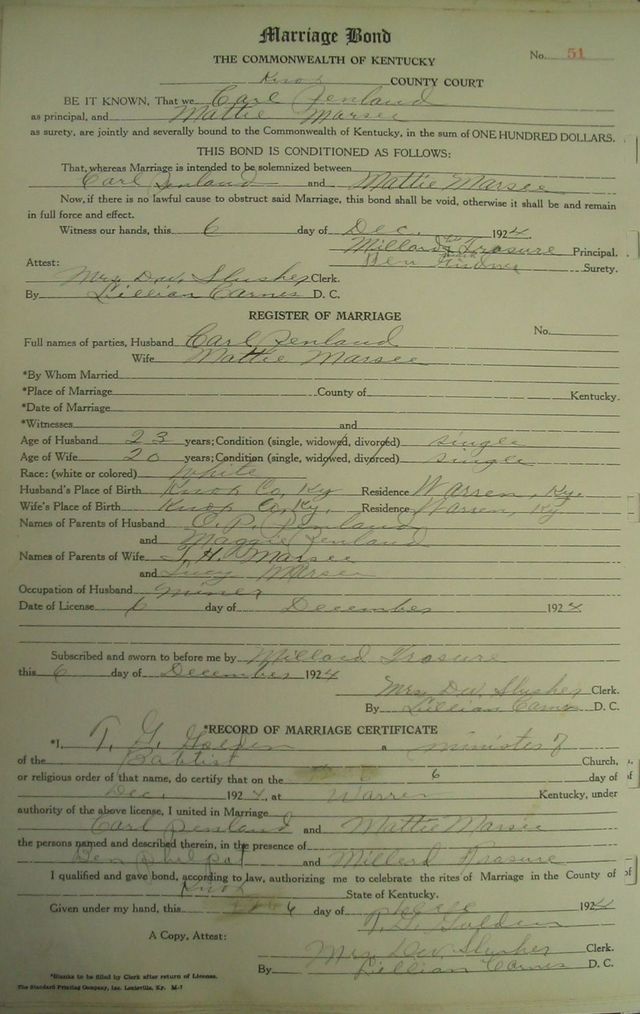 Marriage Bond
No. 51
THE COMMONWEALTH OF KENTUCKY
Knox COUNTY COURT
BE IT KNOWN, That we Carl Penland
as principal, and Mattie Marsee
as surety, are jointly and severally bound to the Commonwealth of Kentucky, in the sum of ONE HUNDRED DOLLARS.
THIS BOND IS CONDITIONED AS FOLLOWS:
That, whereas Marriage is intended to be solemnized between
Carl Penland and Mattie Marsee
Now, if there is no lawful cause to obstruct said Marriage, this bond shall be void, otherwise it shall be and remain
in full force and effect.
Witness our hands, this 6 day of Dec. 1924
Millard Trosure Principal.
Ben Surety.
Attest:
Mrs. D.W. Slusher Clerk.
By Lillian Carnes D. C.
REGISTER OF MARRIAGE
No.
Full names of parties, Husband Carl Penland
Wife Mattie Marsee
*By Whom Married
*Place of Marriage County of Kentucky.
*Date of Marriage
*Witnesses and
Age of Husband 23 years; Condition (single, widowed, divorced) single
Age of Wife 20 years; Condition (single, widowed, divorced) single
Race: (white or colored) White
Husband's Place of Birth Knox Co, Ky Residence Warren, Ky.
Wife's Place of Birth Knox Co, Ky. Residence Warren, Ky
Names of Parents of Husband C. P. Penland
and Maggie Penland
Names of Parents of Wife T. H. Marsee
and Lucy Marsee
Occupation of Husband miner
Date of License 6 day of December 1924
Subscribed and sworn to before me by Millard Trosure
this 6 day of December 1924
Mrs. D.W. Slusher Clerk.
By Lillian Carnes D. C.
*RECORD OF MARRIAGE CERTIFICATE
*I, T. G. Golden a minister
of the Baptist Church,
or religious order of that name, do certify that on the 6 day of
Dec. 1924, at Warren Kentucky, under
authority of the above license, I united in Marriage
Carl Penland and Mattie Marsee
the persons named and described therein, in the presence of
Ben Philpot and Millerd Trosure
I qualified and gave bond, according to law, authorizing me to celebrate the rites of Marriage in the County of
Knox State of Kentucky.
Given under my hand, this 6 day of Dec 1924
T. G. Golden
A Copy, Attest:
Mrs. D.W. Slusher Clerk.
By Lillian Carnes D. C.
*Blanks to be filled by Clerk after return of License.
The Standard Printing Company, Inc. Louisville, Ky. M-7